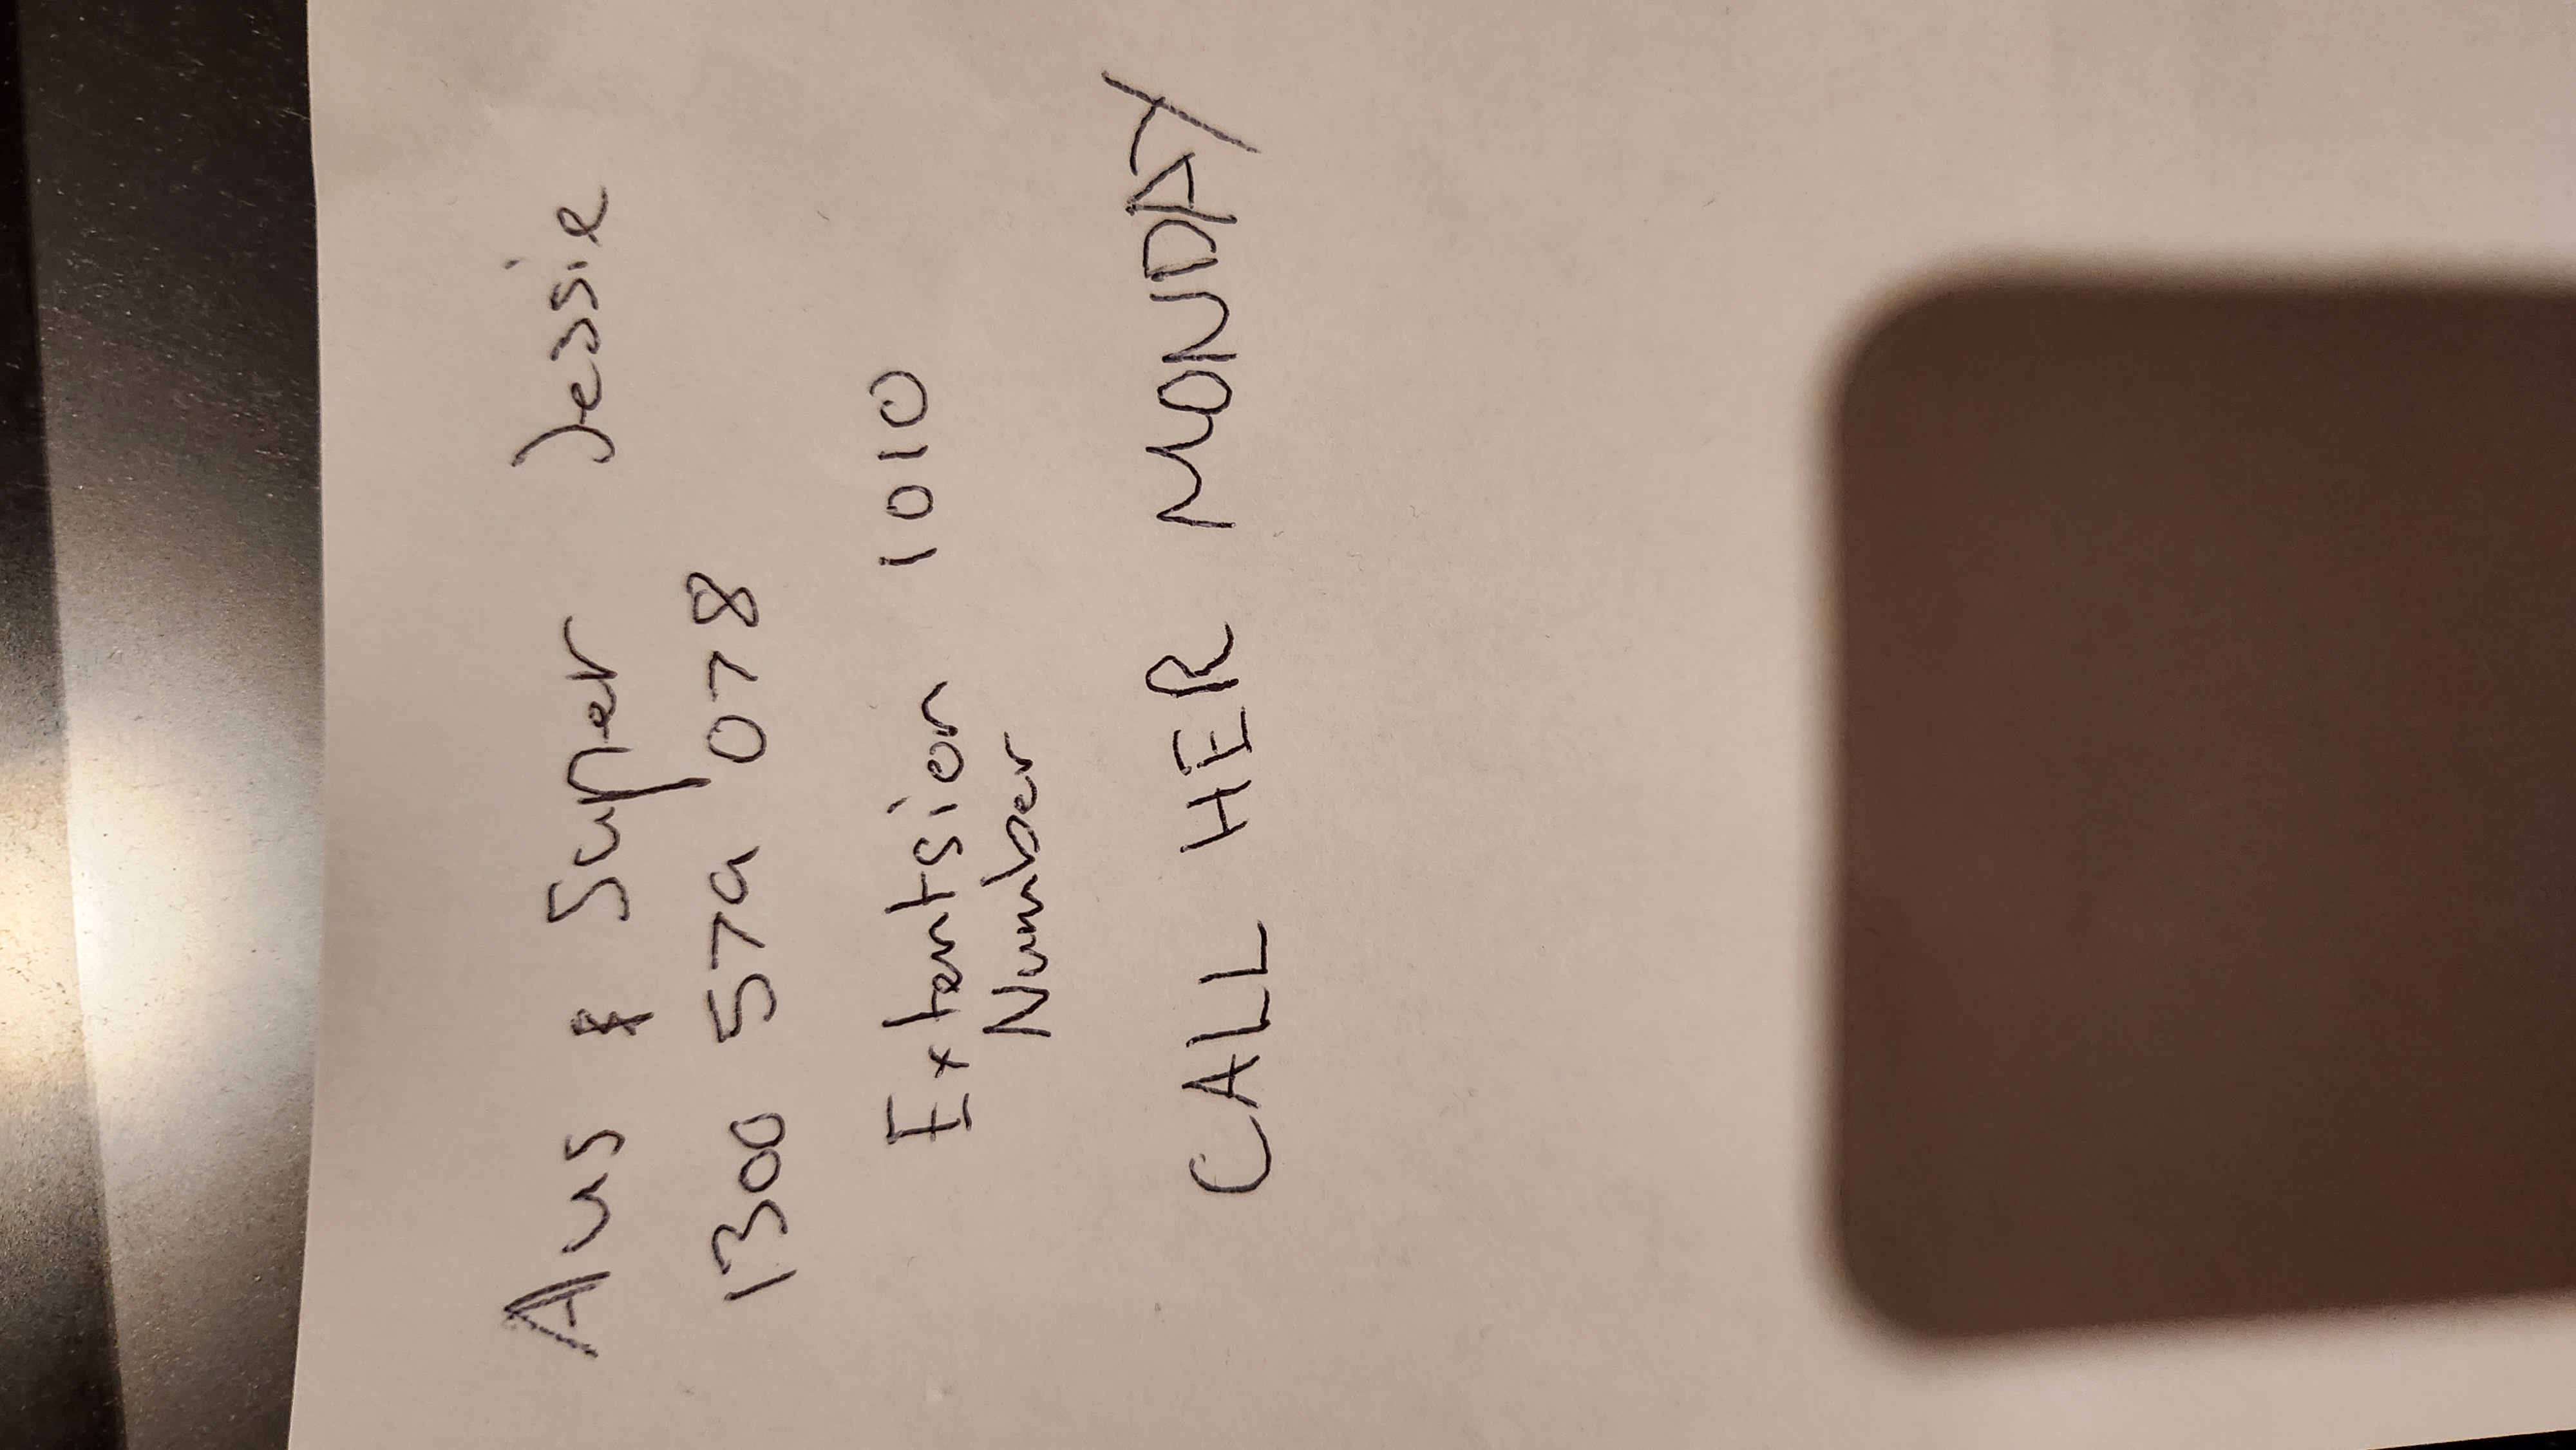 Aus & Super Jessie
1300 579 078
Extentsion 1010
Number
CALL HER MONDAY